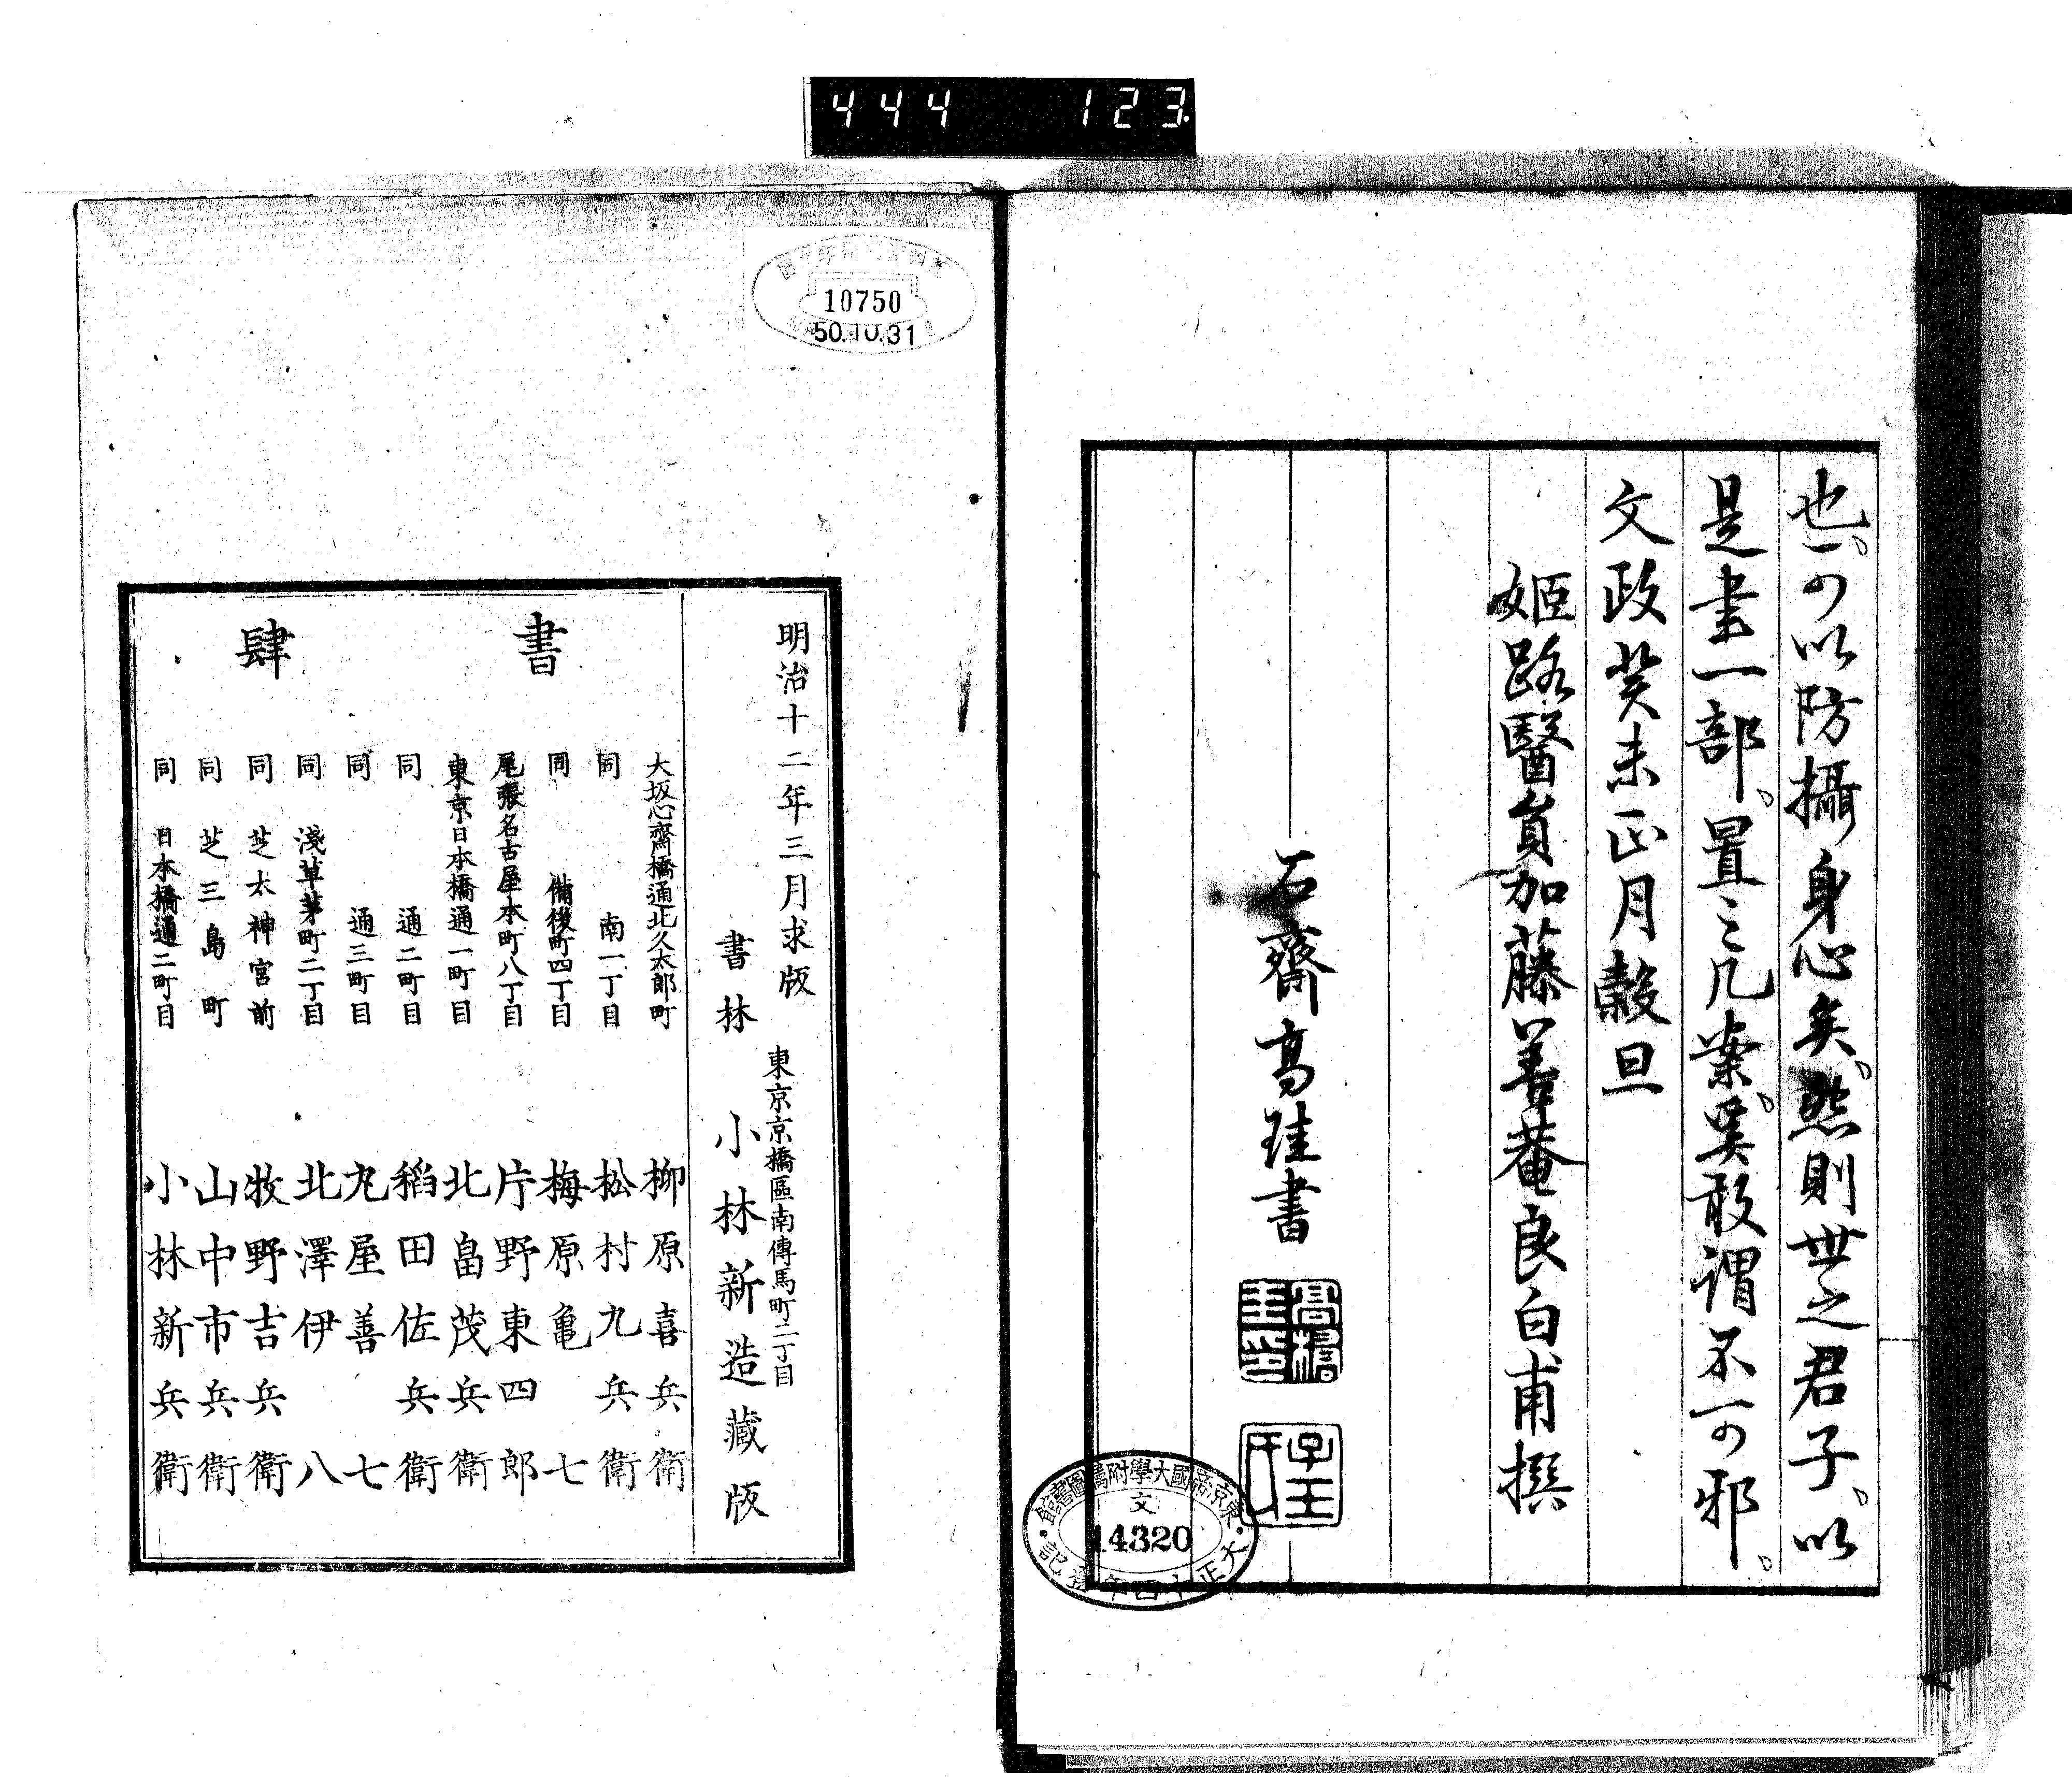 444 123
也。可以防攝身心矣。然則世之君子。以
是書一部。置之几案。奚敢謂不可邪。
文政癸未正月穀旦
姬路醫員加藤善菴良白甫撰
石齋高珪書
高橋
子玉
東京帝國大學附屬圖書館
文
14320
大正十四年登記
10750
50.10.31
明治十二年三月求版
東京京橋區南傳馬町二丁目
書林 小林新造藏版
書肆
大坂心齋橋通北久太郎町 柳原喜兵衛
同 南一丁目 松村九兵衛
同 備後町四丁目 梅原亀七
尾張名古屋本町八丁目 片野東四郎
東京日本橋通一町目 北畠茂兵衛
同 通二町目 稻田佐兵衛
同 通三町目 丸屋善七
同 淺草茅町二丁目 北澤伊八
同 芝太神宮前 牧野吉兵衛
同 芝三島町 山中市兵衛
同 日本橋通二町目 小林新兵衛